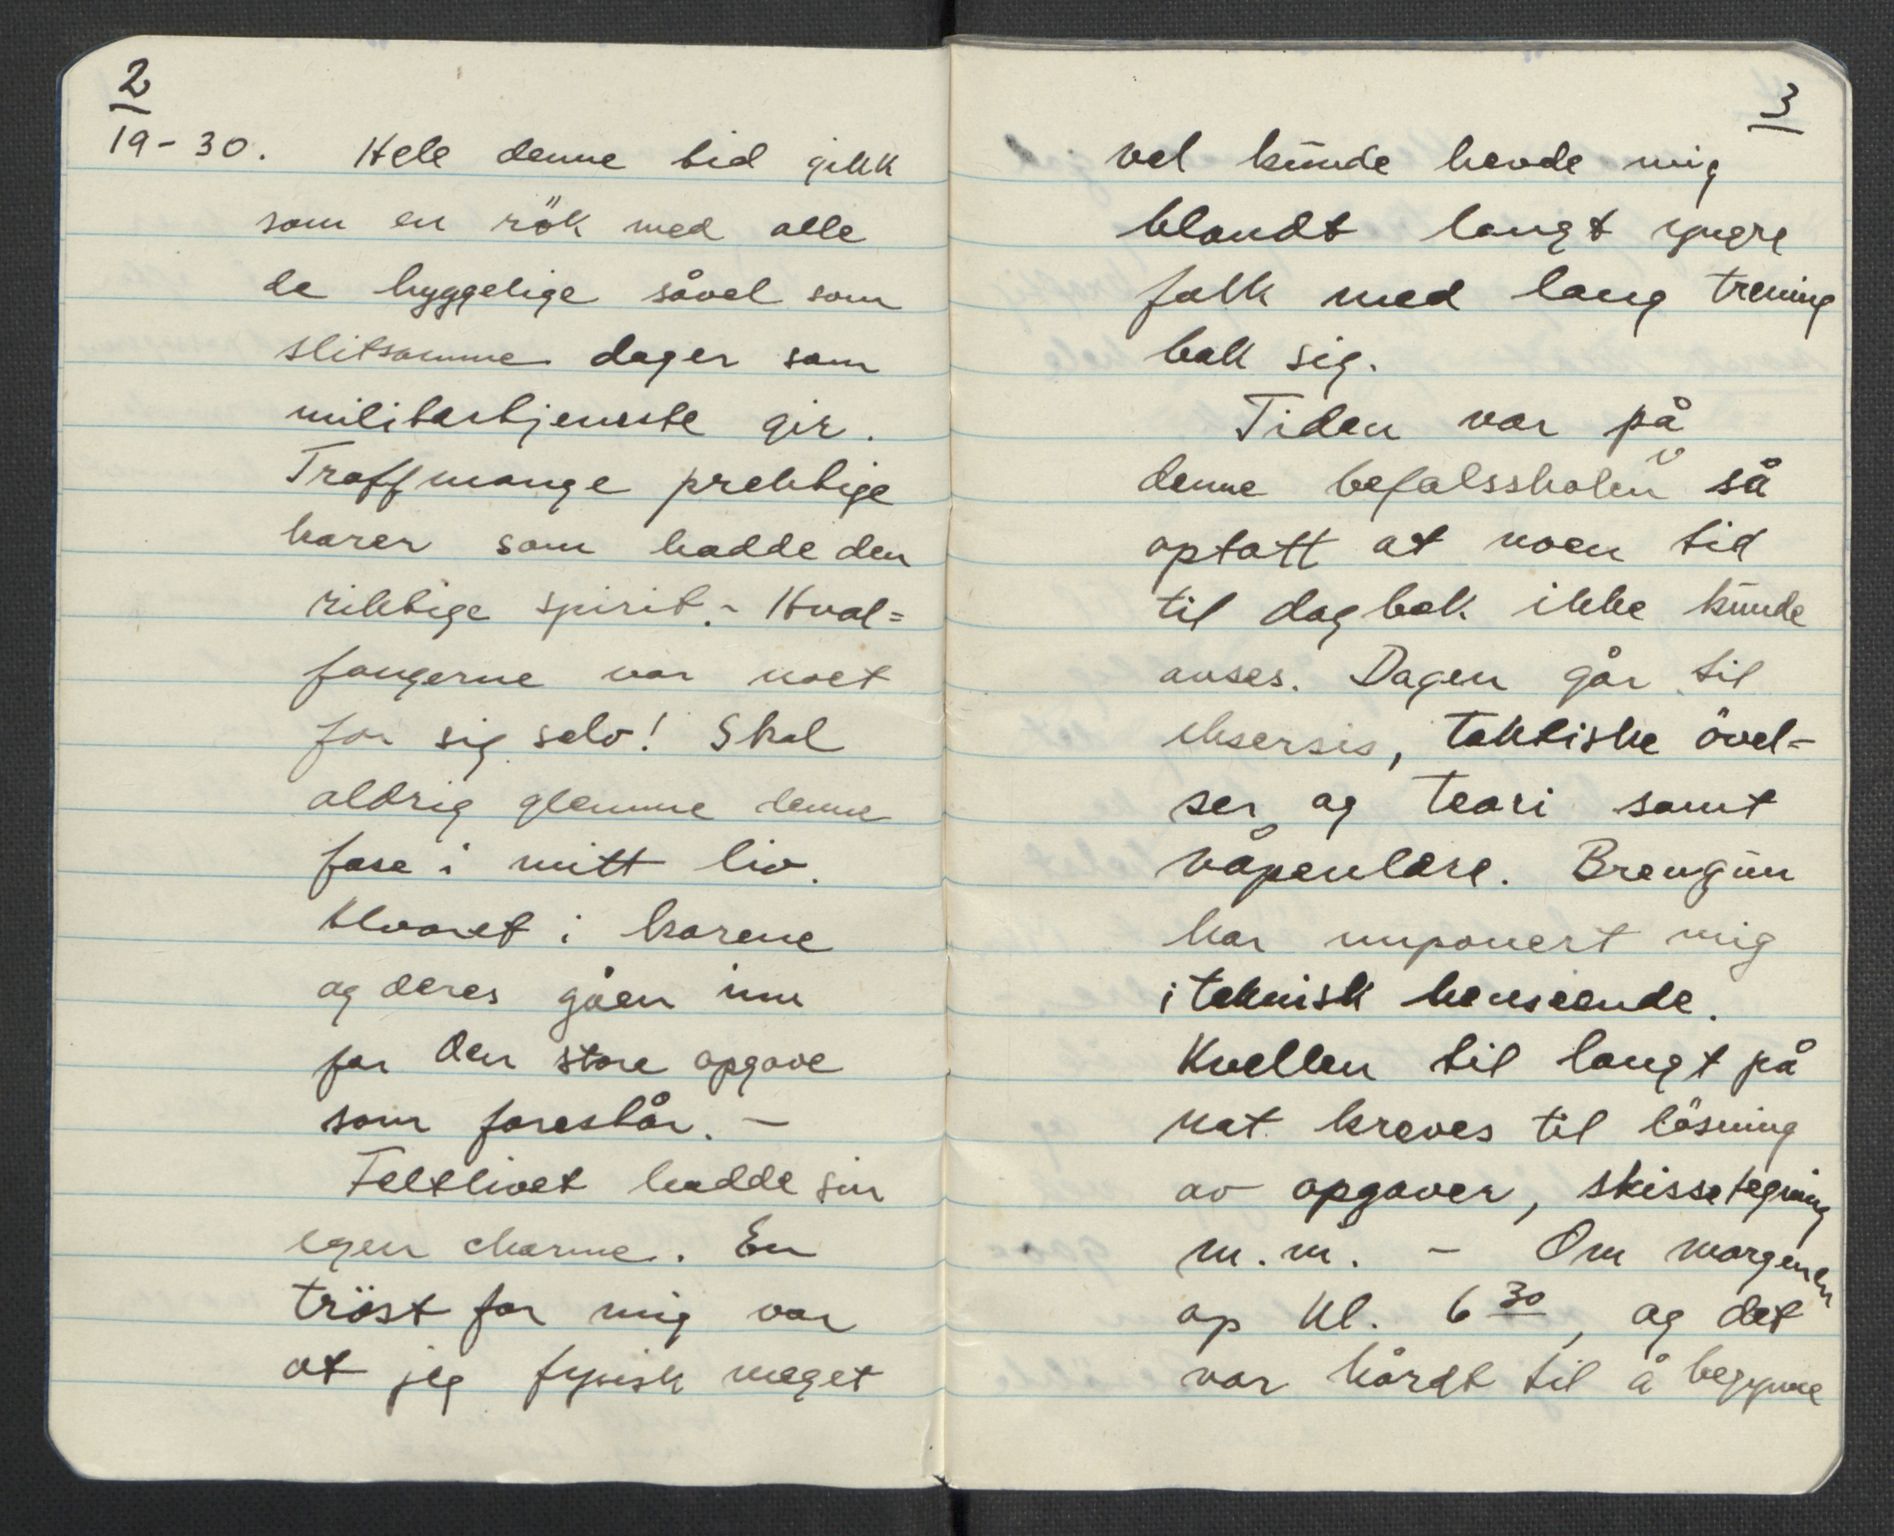 2
19-30. Hele denne tid gikk
som en rök med alle
de hyggelige såvel som
slitsomme dager som
militærtjeneste gir.
Traff mange prektige
karer som hadde den
riktige spirit. - Hval=
fangerne var noet
for sig selv! Skal
aldrig glemme denne
fase i mitt liv.
Alvoret i karene
og deres gåen inn
for den store opgave
som forestår. -
Feltlivet hadde sin
egen charme. En
tröst for mig var
at jeg fysisk meget
3
vel kunde hevde mig
blandt langt yngre
folk med lang trening
bak sig.
Tiden var på
denne befalsskolen så
optatt at noen tid
til dagbok ikke kunde
anses. Dagen går til
eksersis, taktiske övel-
ser og teori samt
våpenlære. Brengun
har imponert mig
i teknisk henseende.
Kvellen til langt på
nat kreves til lösning
av opgaver, skissetegning
m.m. - Om morgenen
op kl. 6 30, og det
var hårdt til å begynne